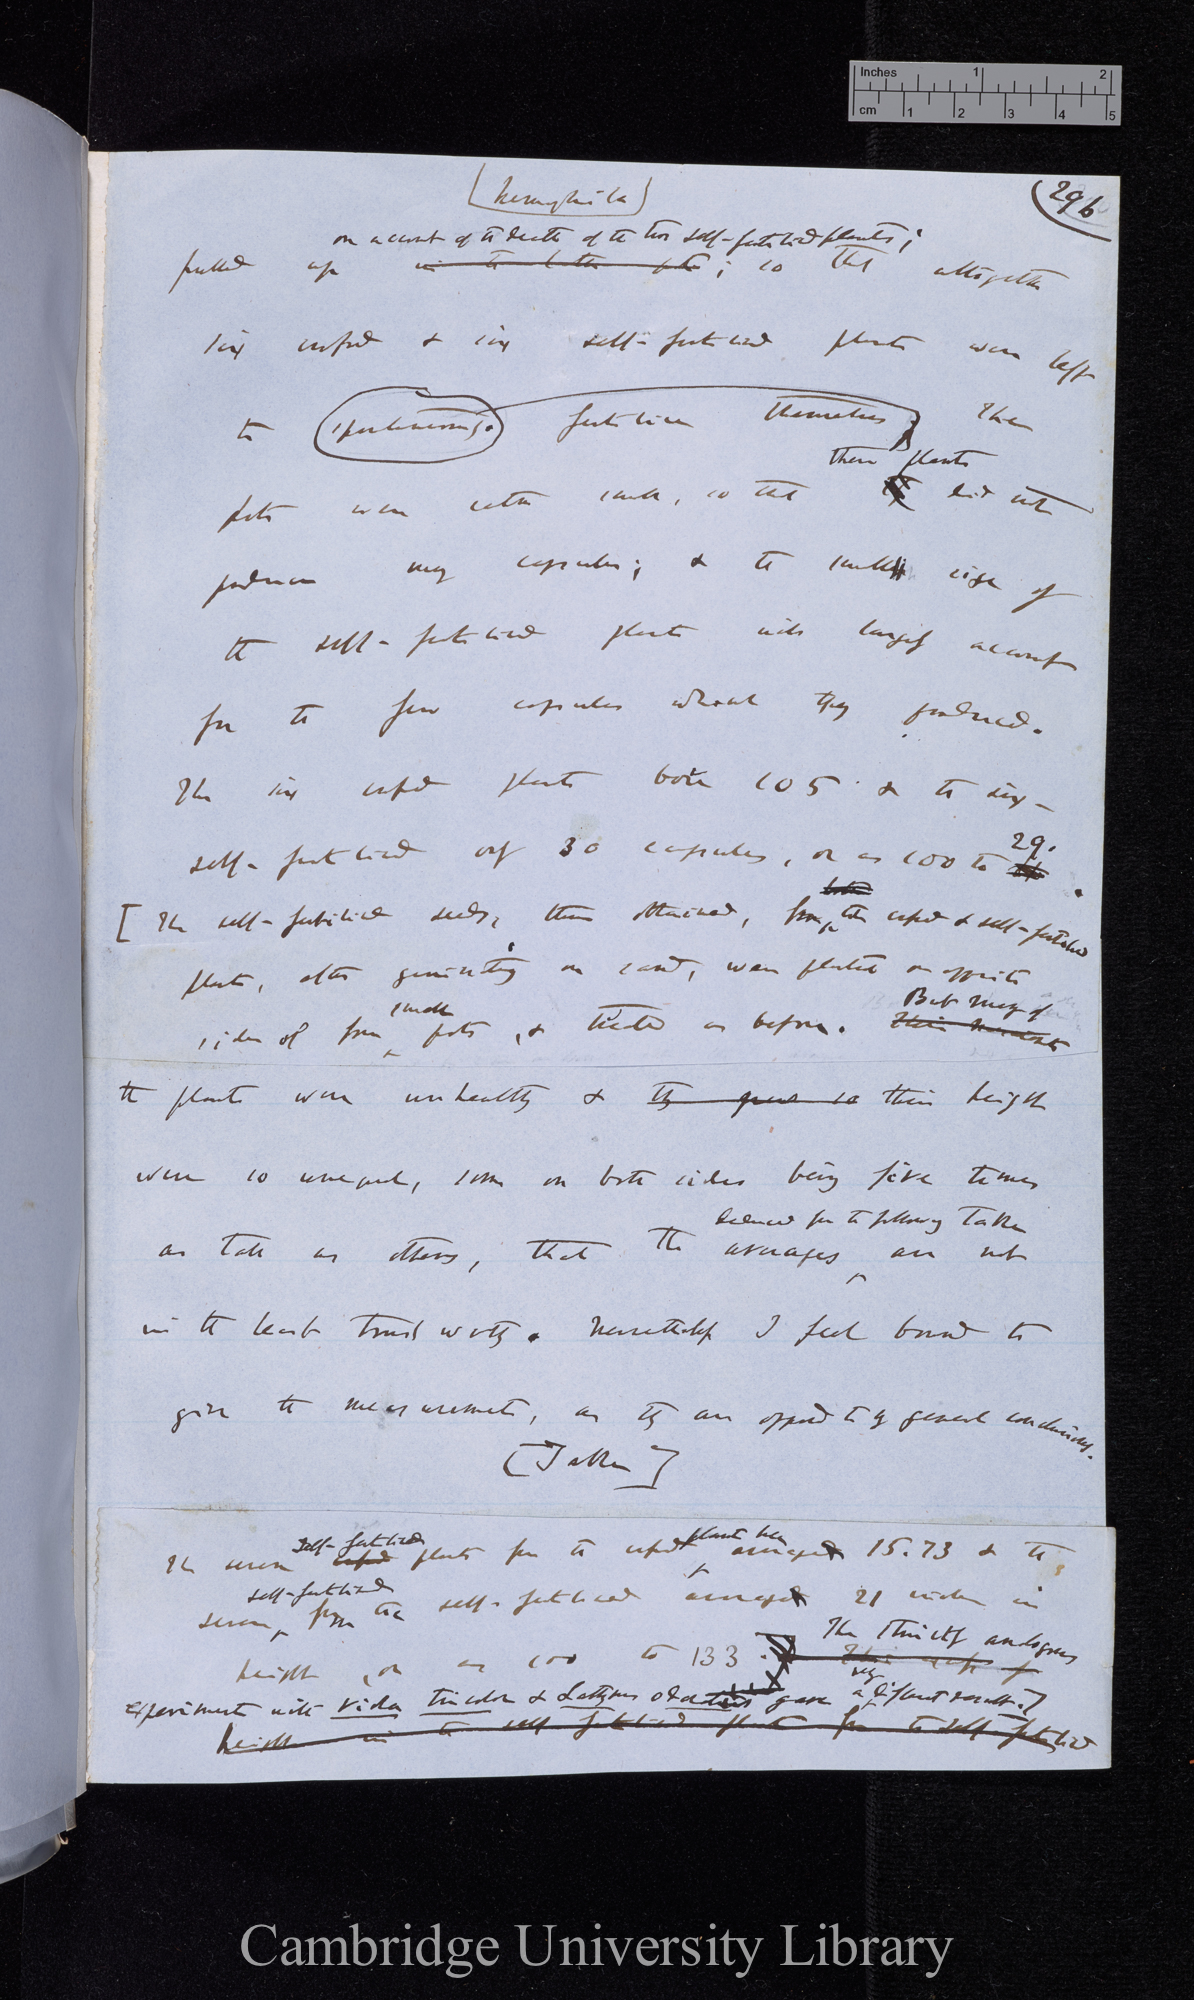 Inches 1 2
cm 1 2 3 4 5
(Nemophila)
296
on account of the death of the two self-fertilised plants;
pulled up in the latter pot; so that altogether
six crossed & six self-fertilised plants were left
to spontaneously fertilise themselves. The
these plants
pots were rather small, so that did not
produce many capsules; & the small size of
the self-fertilised plants will largely account
for the few capsules which they produced.
The six crossed plants bore 105 & the six
29.
self-fertilised only 30 capsules, or as 100 to
[The self-fertilised seeds, thus obtained, from the crossed & self-fertilised
plants, after germinating on sand, were planted on opposite
small But many of
sides of four pots, & treated as before.
the plants were unhealthy & they grew so their height
were so unequal, some on both sides being five times
deduced from the following Table
as tall as others, that the averages are not
in the least trustworthy. Nevertheless I feel bound to
give the measurements, as they are opposed to my general conclusions.
[Table]
self-fertilised plants here
The seven crossed plants from the crossed averaged 15.73 & the
self-fertilised
seven from the self-fertilised averaged 21 inches in
The strictly analogous
height, or as 100 to 133.
very
experiments with Viola tricolor & Lathyrus odoratus gave a different result.]
height in the self fertilised plants from the self-fertilised
Cambridge University Library